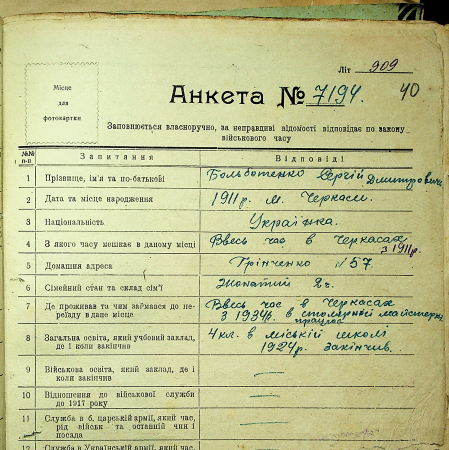 Літ 909
Місце
для
фотокартки
Анкета № 7194.
40
Заповнюється власноручно, за неправдиві відомості відповідає по закону
військового часу
№№ п-п Запитання Відповіді
1 Прізвище, ім'я та по-батькові Больботенко Сергій Дмитрович
2 Дата та місце народження 1911 р. м. Черкаси.
3 Національність Українка.
4 З якого часу мешкає в даному місці Ввесь час в Черкасах
з 1911 р.
5 Домашня адреса Грінченко №57.
6 Сімейний стан та склад сім'ї Жонатий 2 ч.
7 Де проживав та чим займався до пе-
реїзду в дане місце
Ввесь час в Черкасах
З 1934 р. в столярной майстерні
працював
8 Загальна освіта, який учбовий заклад,
де і коли закінчив
4 кл. в міській школі
1924 р. закінчив.
9 Військова освіта, який заклад, де і
коли закінчив —
10 Відношення до військової служби
до 1917 року —
11 Служба в б. царській армії, який час,
рід військ та останній чин і
посада —
12 Служба в Українській армії, який час,